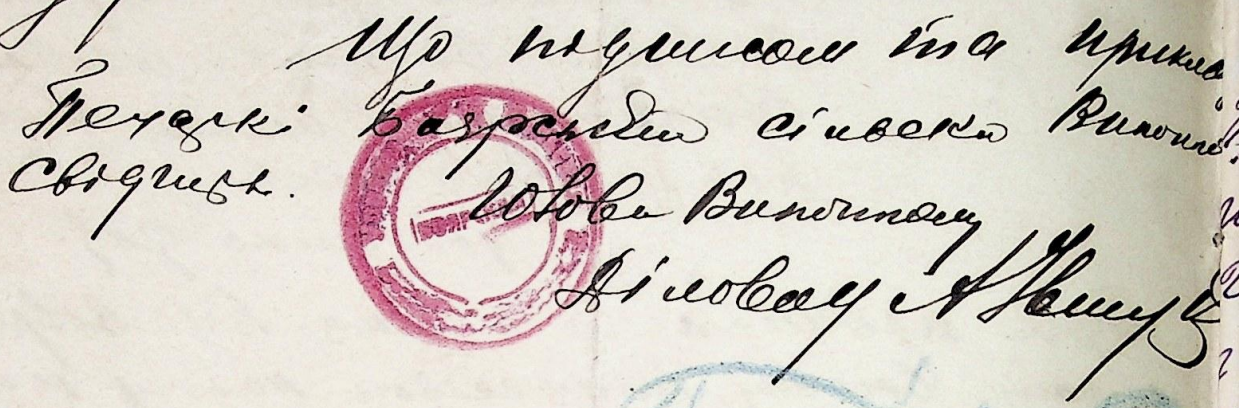 Що підписом та прикла
Печаткі Боярський сільська Виконко
свідчить.
Голова Виконкому
Діловод